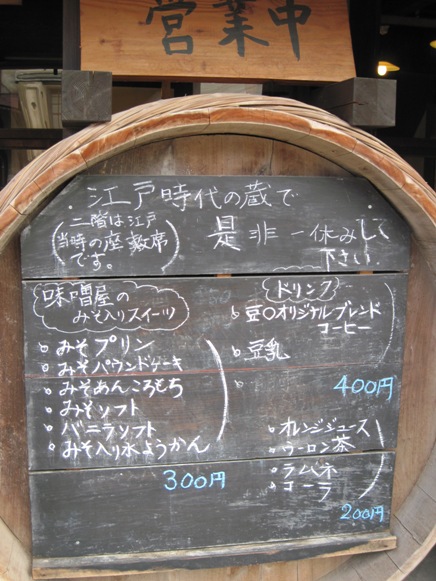 営業中
江戸時代の蔵で
是非一休みして
下さい.
(二階は江戸
当時の座敷席
です。)
味噌屋の
みそ入りスイーツ
みそプリン
みそパウンドケーキ
みそあんころもち
みそソフト
バニラソフト
みそ入り水ようかん
300円
ドリンク
豆〇オリジナルブレンド
コーヒー
豆乳
400円
オレンジジュース
ウーロン茶
ラムネ
コーラ
200円